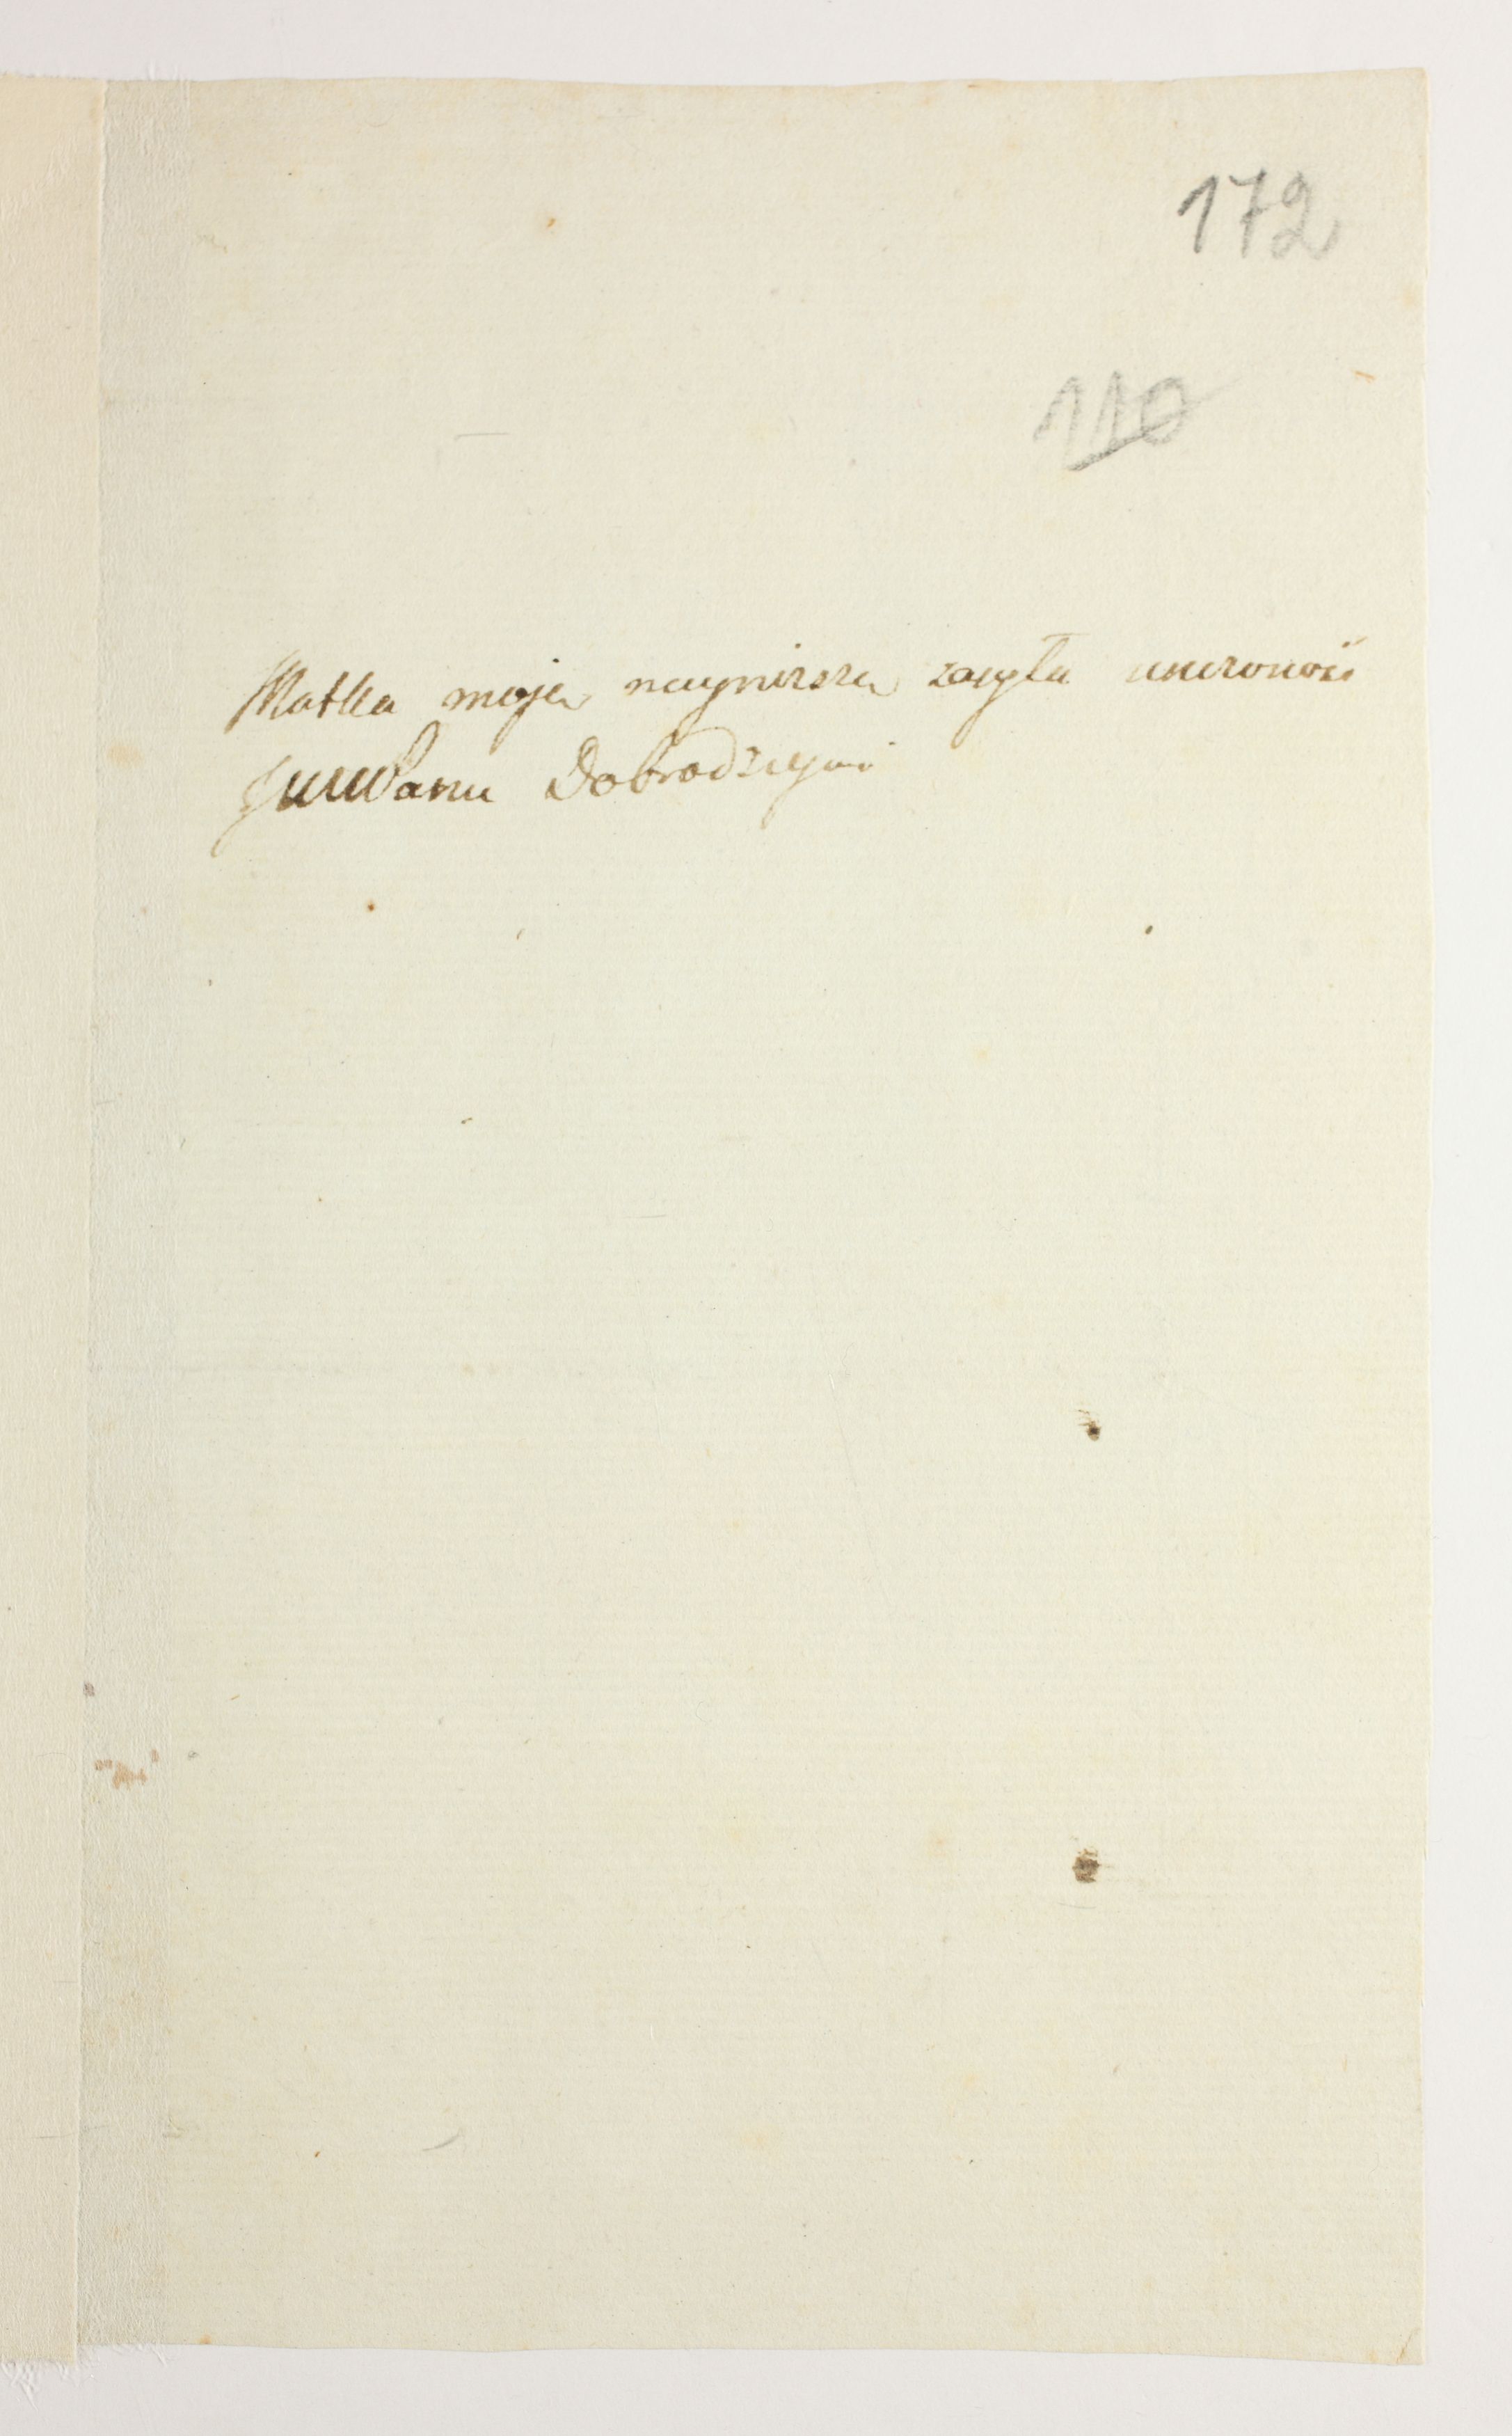 172
110
Matka moja naynizsza zasyła unizonosc
JWWPanu Dobrodzieiowi